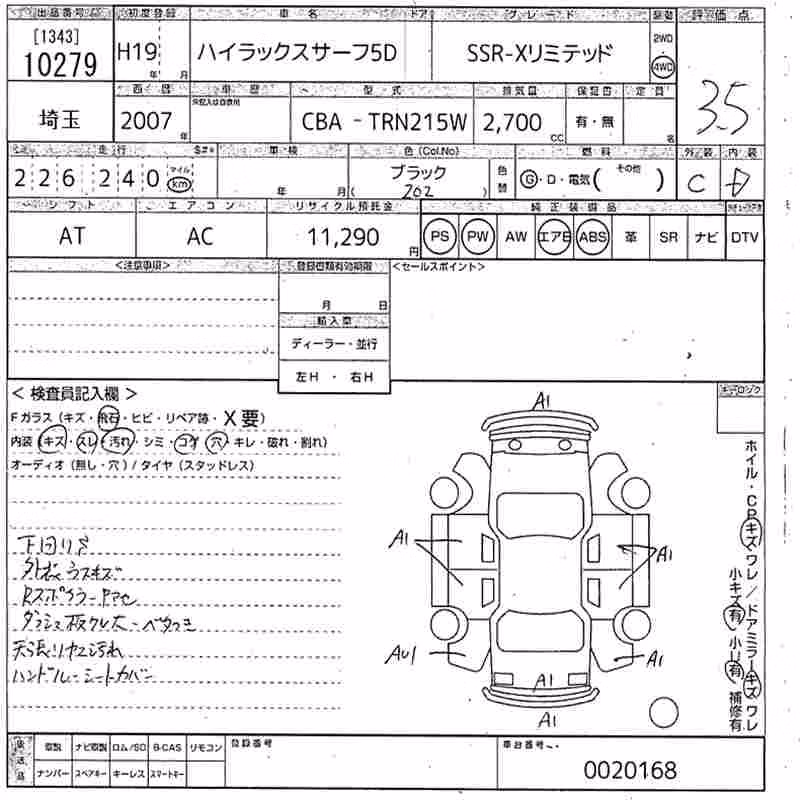 出品番号 初度登録 車名 ドア グレード 駆動 評価点
[1343]
10279 H19 年 月 ハイラックスサーフ5D SSR-Xリミテッド 2WD 4WD 3.5
西暦 車歴 型式 排気量 保証書 定員
埼玉 2007 年 CBA - TRN215W 2,700 cc 有・無 名
走行 車検 色(Col.No) 燃料 外装 内装
226,240 マイル km 年 月 ブラック 202 色替 G・D・電気( その他 ) C D
シフト エアコン リサイクル預託金 純正装備品
AT AC 11,290 円 PS PW AW エアB ABS 革 SR ナビ DTV
<注意事項> 登録書類有効期限 <セールスポイント>
月 日
輸入車
ディーラー・並行
左H ・ 右H
< 検査員記入欄 >
Fガラス (キズ・飛石・ヒビ・リペア跡・X要)
内装 (キズ・スレ・汚れ・シミ・コゲ・穴・キレ・破れ・割れ)
オーディオ (無し・穴) / タイヤ (スタッドレス)
下回りS
外板ウスキズ
天張リヤエ汚れ
ハンドル・シートカバー
A1
A1 A1
AU1 A1
A1
A1
ホイル・CPキズワレ/ドアミラーキズワレ
小キズ有 小U有 補修有
後送品 車製 ナビ取説 ロム/SD B-CAS リモコン 登録番号 車台番号
ナンバー スペアキー キーレス スマートキー 0020168